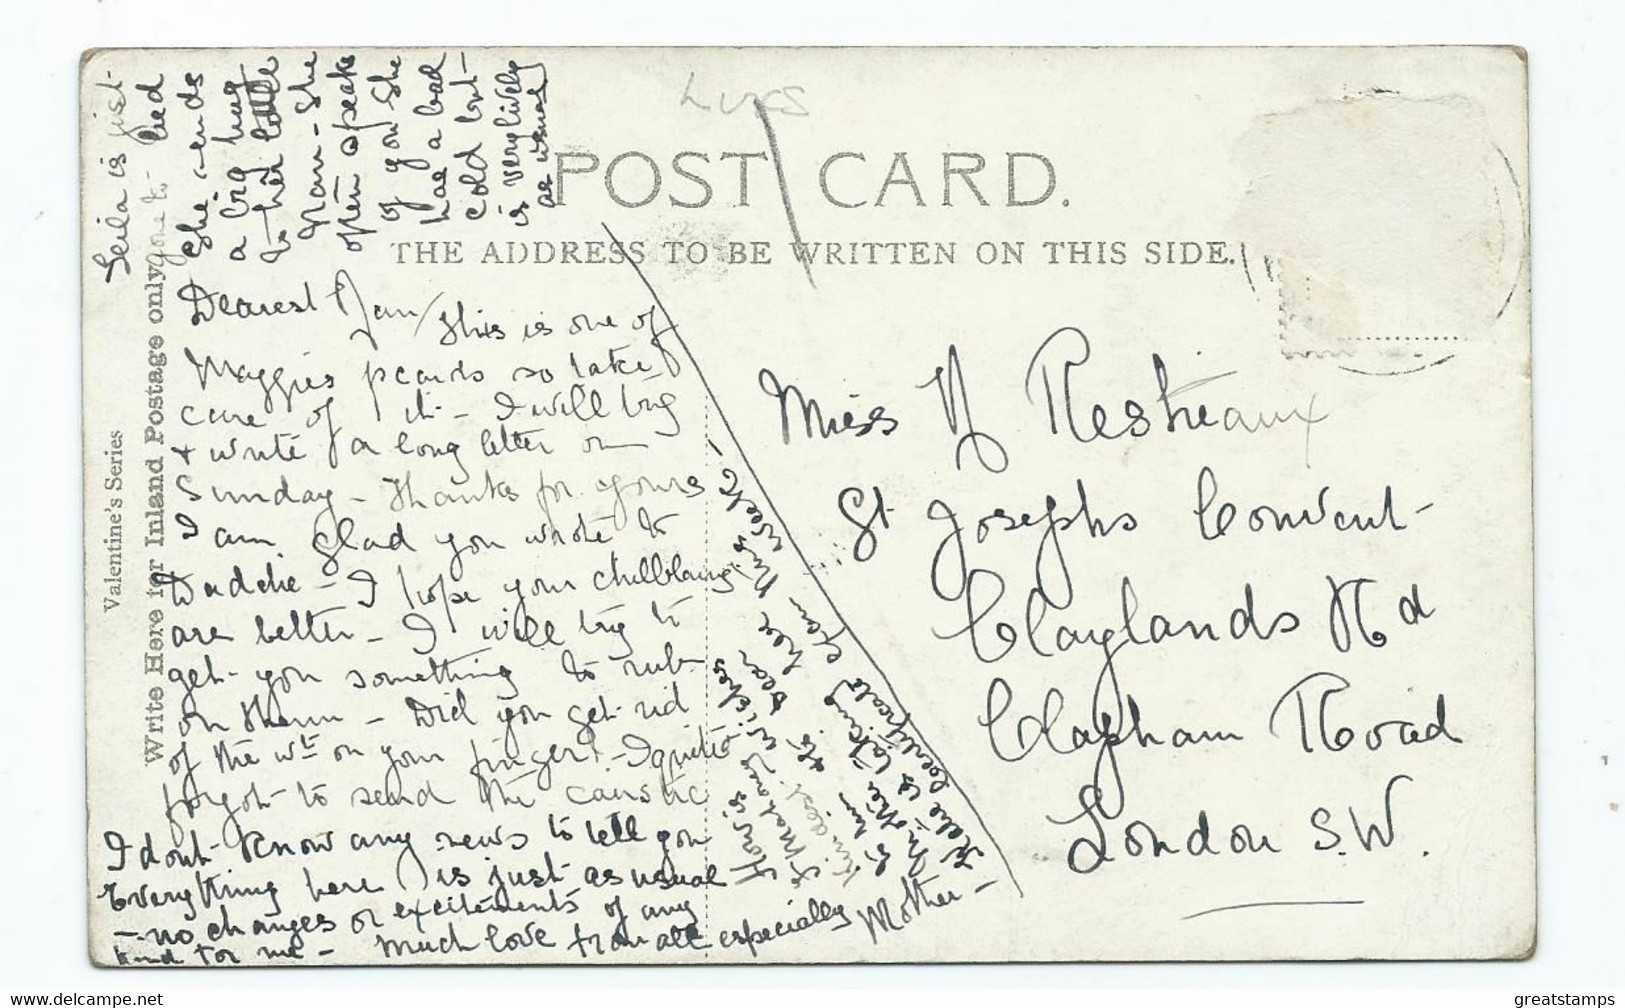 Lucs
POST CARD.
THE ADDRESS TO BE WRITTEN ON THIS SIDE.
Valentine's Series
Write Here for Inland Postage only
Leila is just
gone to bed
She sends
a big hug
to her little
Nan - She
often speaks
of you She
has a bad
cold but
is very lively
as usual
Dearest Nan / This is one of
Maggies pcards so take
care of it - I will try
+ write a long letter on
Sunday - Thanks for yours
I am glad you wrote to
Daddie - I hope your chilblains
are better - I will try to
get you something to rub
on them - Did you get rid
of the wt on your finger? - I quite
forgot to send the caustic
I dont know any news to tell you
Everything here is just as usual
- no changes or excitements of any
kind for me - Much love from all especially Mother -
How is
kindest wishes
to her
Miss N Restieaux
St Josephs Convent
Claylands Rd
Clapham Road
London S.W.
greatstamps
www.delcampe.net